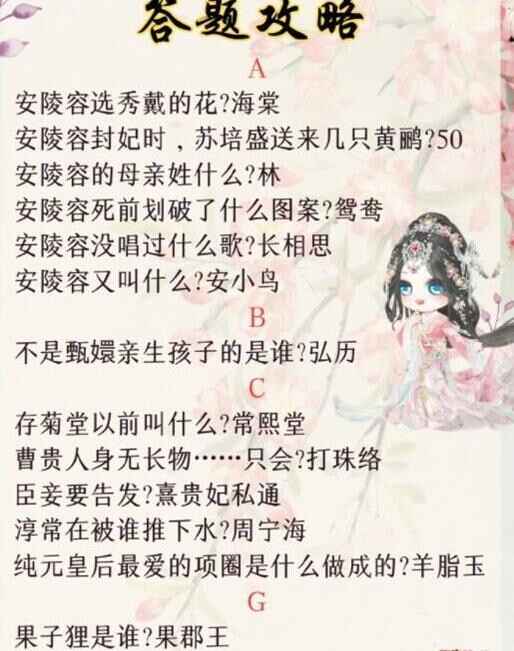 答题攻略
A
安陵容选秀戴的花?海棠
安陵容封妃时，苏培盛送来几只黄鹂?50
安陵容的母亲姓什么?林
安陵容死前划破了什么图案?鸳鸯
安陵容没唱过什么歌?长相思
安陵容又叫什么?安小鸟
B
不是甄嬛亲生孩子的是谁?弘历
C
存菊堂以前叫什么?常熙堂
曹贵人身无长物……只会?打珠络
臣妾要告发?熹贵妃私通
淳常在被谁推下水?周宁海
纯元皇后最爱的项圈是什么做成的?羊脂玉
G
果子狸是谁?果郡王